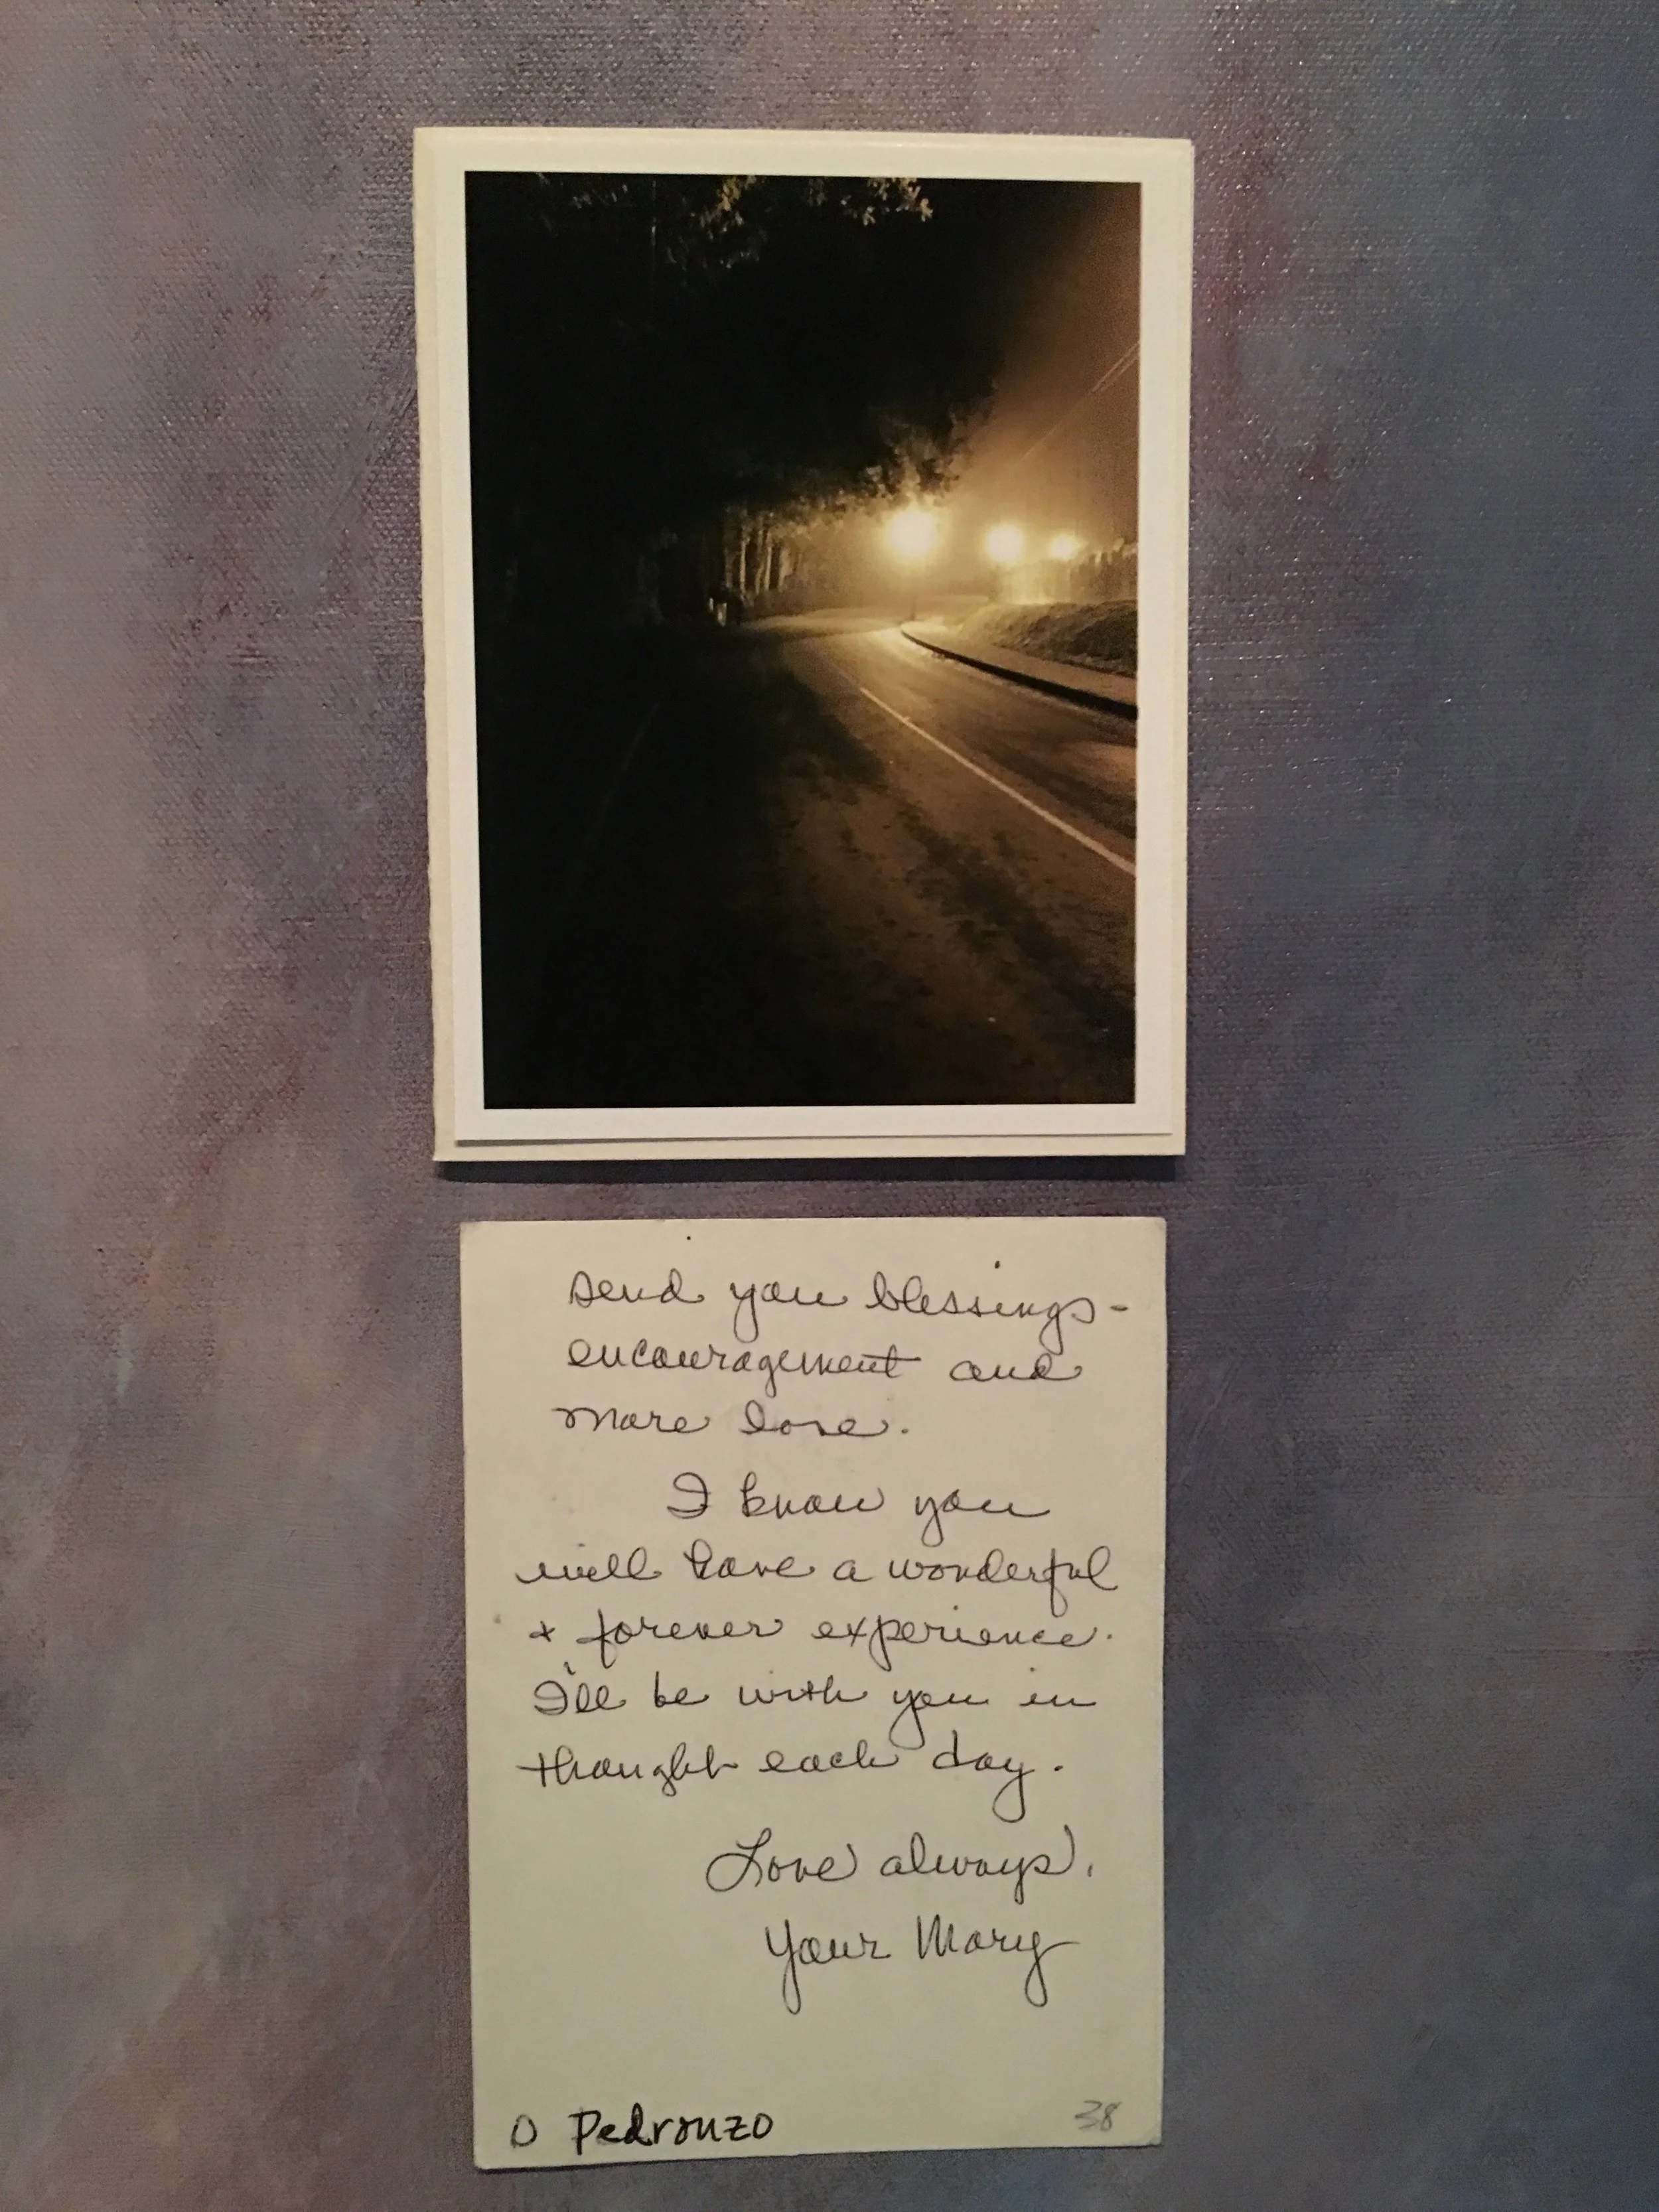 send you blessings-
encouragement and
more love.
I know you
will have a wonderful
+ forever experience.
I'll be with you in
thought each day.
Love always,
Your Mary
O Pedronzo
38